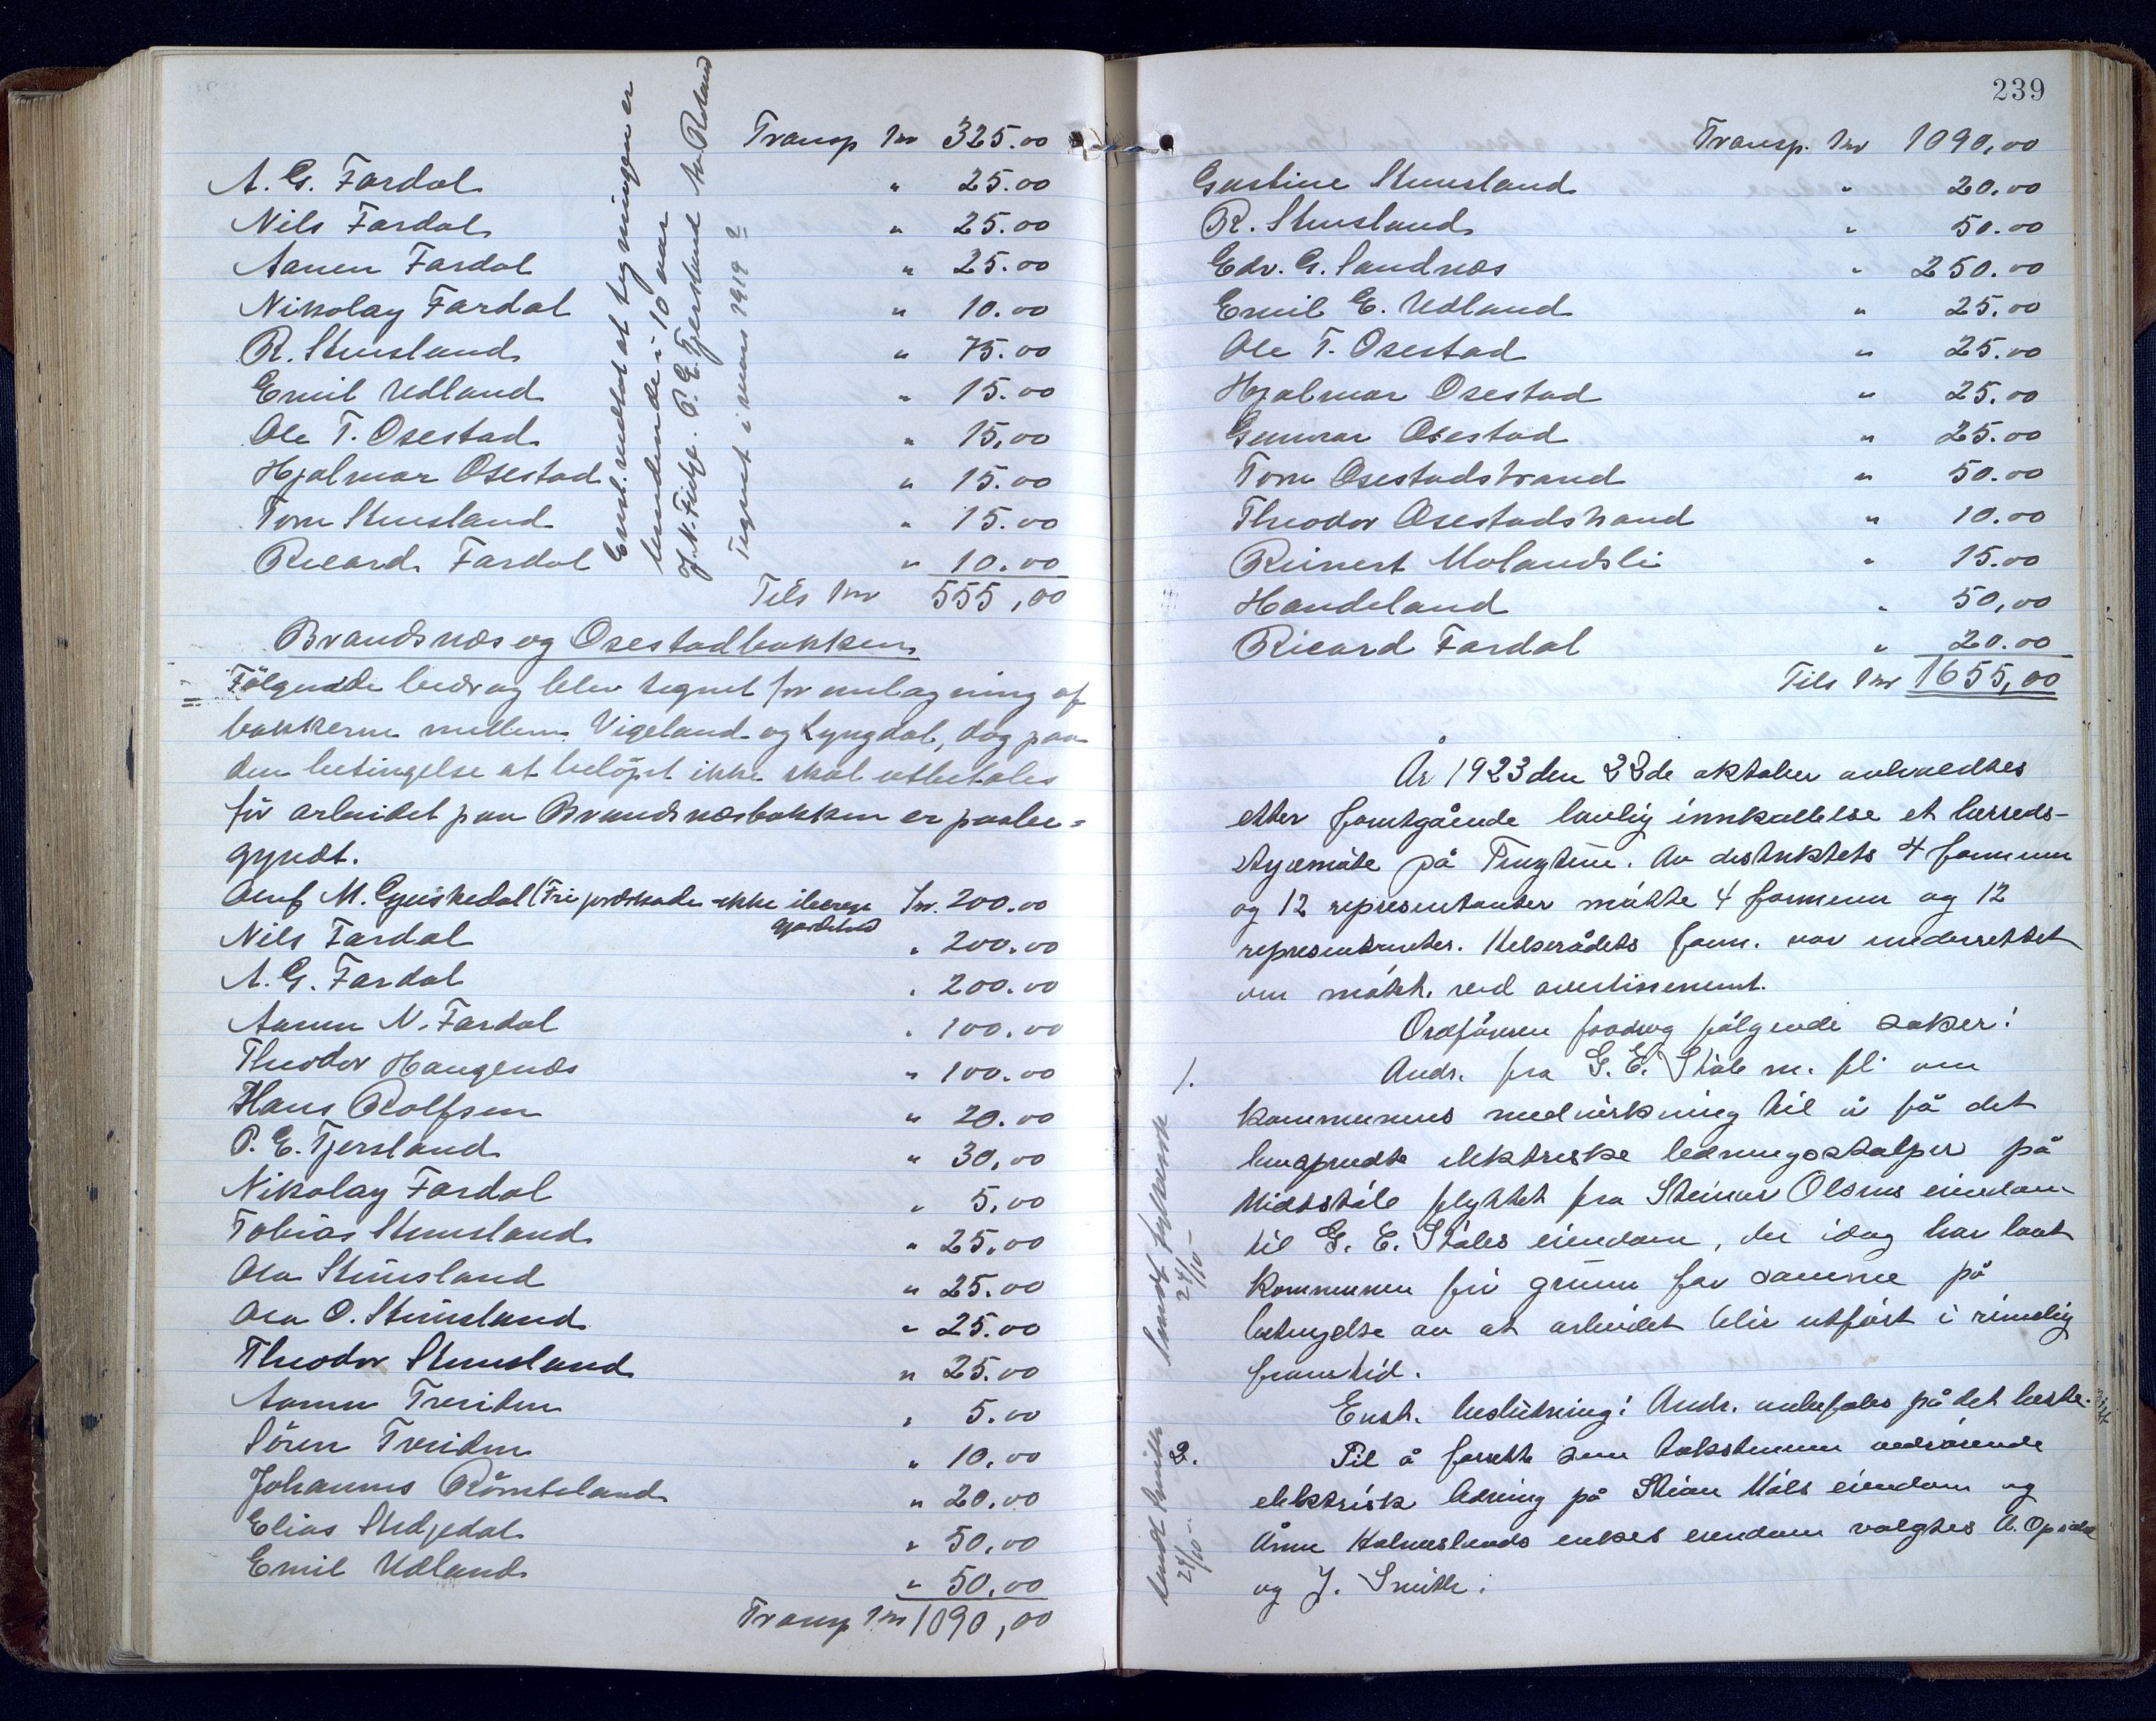 Transp kr 325.00
A. G. Fardal " 25.00
Nils Fardal " 25.00
Aanen Fardal " 25.00
Nikolay Fardal " 10.00
R. Stusland " 75.00
Emil Udland " 15.00
Ole T. Osestad " 15,00
Hjalmar Osestad " 15.00
Tom Stusland " 15.00
Ricard Fardal " 10.00
Tils kr 555,00
Enst. vedtat at tegningen er
bindende i 10 aar
J. N. Fidje. P. E. Tjersland
Tegnet i mars 1919
Brandsnæs og Osestadbakken
Følgende bidrag blev tegnet for omlægning af
bakkerne mellem Vigeland og Lyngdal, dog paa
den betingelse at beløpet ikke skal utbetales
før arbeidet paa Brandsnæsbakken er paabe=
gyndt.
Oluf M. Gyuskedal (Fri jordskade ikke iberegn kr. 200.00
gjærdehold
Nils Fardal " 200.00
A. G. Fardal " 200.00
Aanen N. Fardal " 100.00
Theodor Haugenæs " 100.00
Hans Rolfsen " 20.00
P. E. Tjersland " 30,00
Nikolay Fardal " 5,00
Tobias Stusland " 25,00
Ola Stusland " 25.00
Ola O. Stusland " 25.00
Theodor Stusland " 25.00
Aanen Treiden " 5.00
Sören Treiden " 10,00
Johannes Römteland " 20,00
Elias Skdjedal " 50,00
Emil Udland " 50,00
Transp kr 1090,00
239
Transp. kr 1090,00
Gustine Stusland " 20,00
R. Stusland " 50.00
Edv. G. Sandnæs " 250.00
Emil E. Udland " 25.00
Ole T. Osestad " 25.00
Hjalmar Osestad " 25.00
Gunvar Osestad " 25.00
Tom Osestadstrand " 50.00
Theodor Osestadstrand " 10.00
Reinert Molandsli " 15.00
Handeland " 50,00
Ricard Fardal " 20.00
Tils kr 1655,00
År 1923 den 22de oktober avholdtes
etter foregående lovlig innkallelse et herreds-
styremöte på Tingtun. Av distriktets 4 formenn
og 12 representanter mötte 4 formenn og 12
representanter. Helserådets form. var underrettet
om mötet ved avertissement.
Ordföreren foredrog fölgende saker:
1. Andr. fra G. E. Ståle m. fl. om
kommunens medvirkning til å få det
elektriske ledningsstolper på
Midtståle flyttet fra Steinar Olsens eiendom
til G. E. Ståles eiendom, der idag har lovt
kommunen fri grunn for samme på
betingelse av at arbeidet blir utfört i rimelig
fremtid.
Enst. beslutning: Andr. anbefales på det beste.
2. Til å forrette som takstmenn vedrörende
elektrisk ledning på Stian Våls eiendom og
Ånen Holmeslands enkes eiendom valgtes A. Opsal
og J. Smith.
24/10
24/10